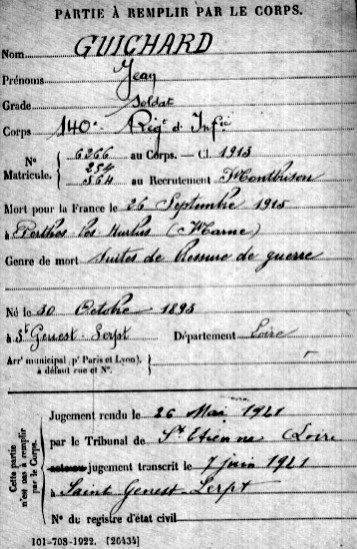 PARTIE À REMPLIR PAR LE CORPS.
Nom GUICHARD
Prénoms Jean
Grade Soldat
Corps 140e Régt d'Infie
Nº Matricule. 6266 au Corps. — Cl. 1915
254
564 au Recrutement Montbrison
Mort pour la France le 26 Septembre 1915
à Perthes les Hurlus (Marne)
Genre de mort Suites de Blessure de guerre
Né le 30 Octobre 1895
à St Genest-Lerpt Département Loire
Arrt municipal (pr Paris et Lyon), à défaut rue et Nº.
Cette partie n'est pas à remplir par le Corps.
Jugement rendu le 26 Mai 1921
par le Tribunal de St Etienne (Loire
jugement transcrit le 7 juin 1921
à Saint Genest-Lerpt
Nº du registre d'état civil
101-708-1922. [26434]